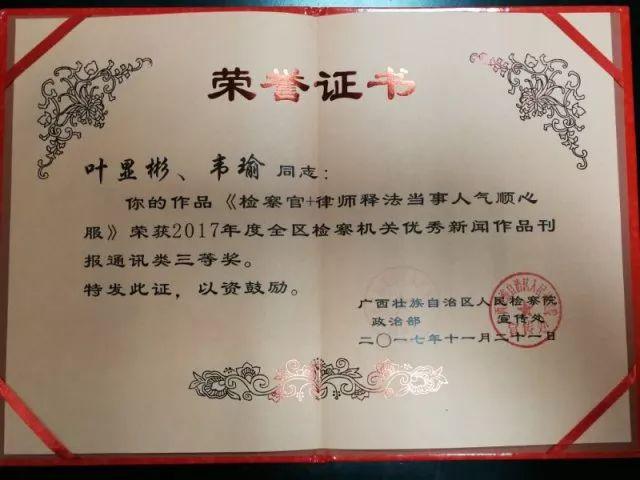 荣誉证书
叶显彬、韦瑜 同志：
你的作品《检察官+律师释法当事人气顺心
服》荣获2017年度全区检察机关优秀新闻作品刊
报通讯类三等奖。
特发此证，以资鼓励。
广西壮族自治区人民检察院
政治部 宣传处
二〇一七年十一月二十一日